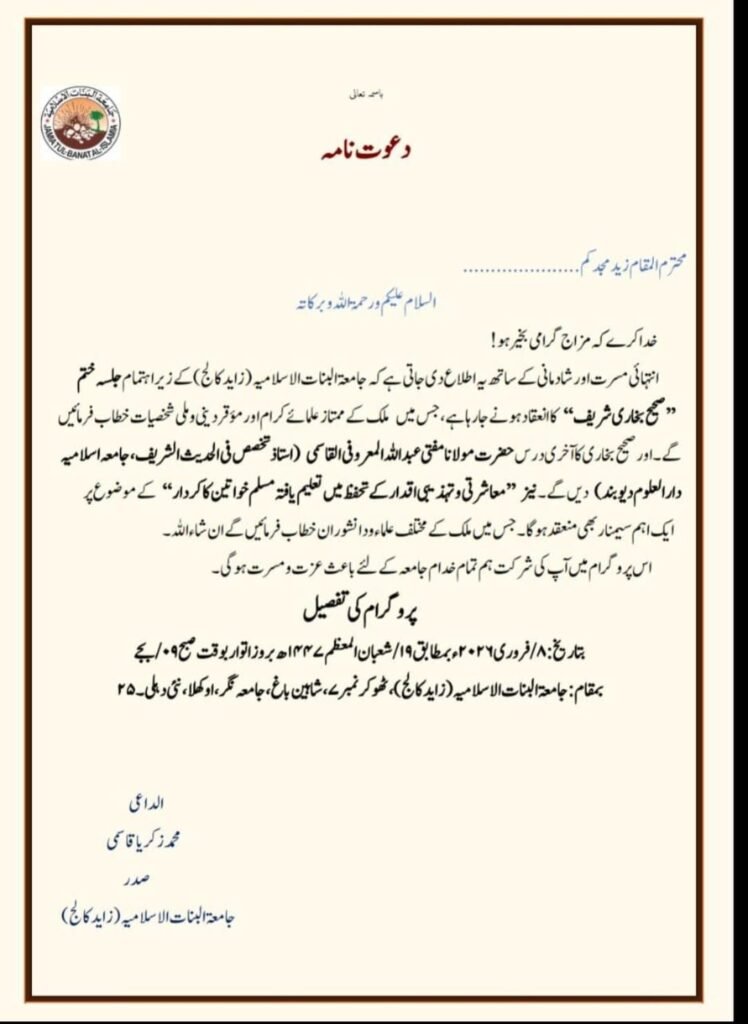 باسمہ تعالی
جامعۃ البنات الاسلامیۃ
JAMIATUL-BANATAL-ISLAMIA
دعوت نامہ
محترم المقام زید مجدکم.....................
السلام علیکم ورحمۃ اللہ وبرکاتہ
خدا کرے کہ مزاج گرامی بخیر ہو!
انتہائی مسرت اور شادمانی کے ساتھ یہ اطلاع دی جاتی ہے کہ جامعۃ البنات الاسلامیہ (زاید کالج) کے زیر اہتمام جلسہ ختم
”صحیح بخاری شریف“ کا انعقاد ہونے جارہا ہے، جس میں ملک کے ممتاز علمائے کرام اور مؤقر دینی و ملی شخصیات خطاب فرمائیں
گے۔ اور صحیح بخاری کا آخری درس حضرت مولانا مفتی عبد اللہ المعروفی القاسمی (استاذ تخصص فی الحدیث الشریف، جامعہ اسلامیہ
دارالعلوم دیوبند) دیں گے۔ نیز ”معاشرتی و تہذیبی اقدار کے تحفظ میں تعلیم یافتہ مسلم خواتین کا کردار“ کے موضوع پر
ایک اہم سیمنار بھی منعقد ہوگا۔ جس میں ملک کے مختلف علماء ودانشوران خطاب فرمائیں گے ان شاء اللہ۔
اس پروگرام میں آپ کی شرکت ہم تمام خدام جامعہ کے لئے باعث عزت و مسرت ہوگی۔
پروگرام کی تفصیل
بتاریخ: ۸/فروری ۲۰۲۶ء بمطابق ۱۹/شعبان المعظم ۱۴۴۷ھ بروز اتوار بوقت صبح ۰۹/بجے
بمقام: جامعۃ البنات الاسلامیہ (زاید کالج)، ٹھوکر نمبر ۷، شاہین باغ، جامعہ نگر، اوکھلا، نئی دہلی۔۲۵
الداعی
محمد زکریا قاسمی
صدر
جامعۃ البنات الاسلامیہ (زاید کالج)